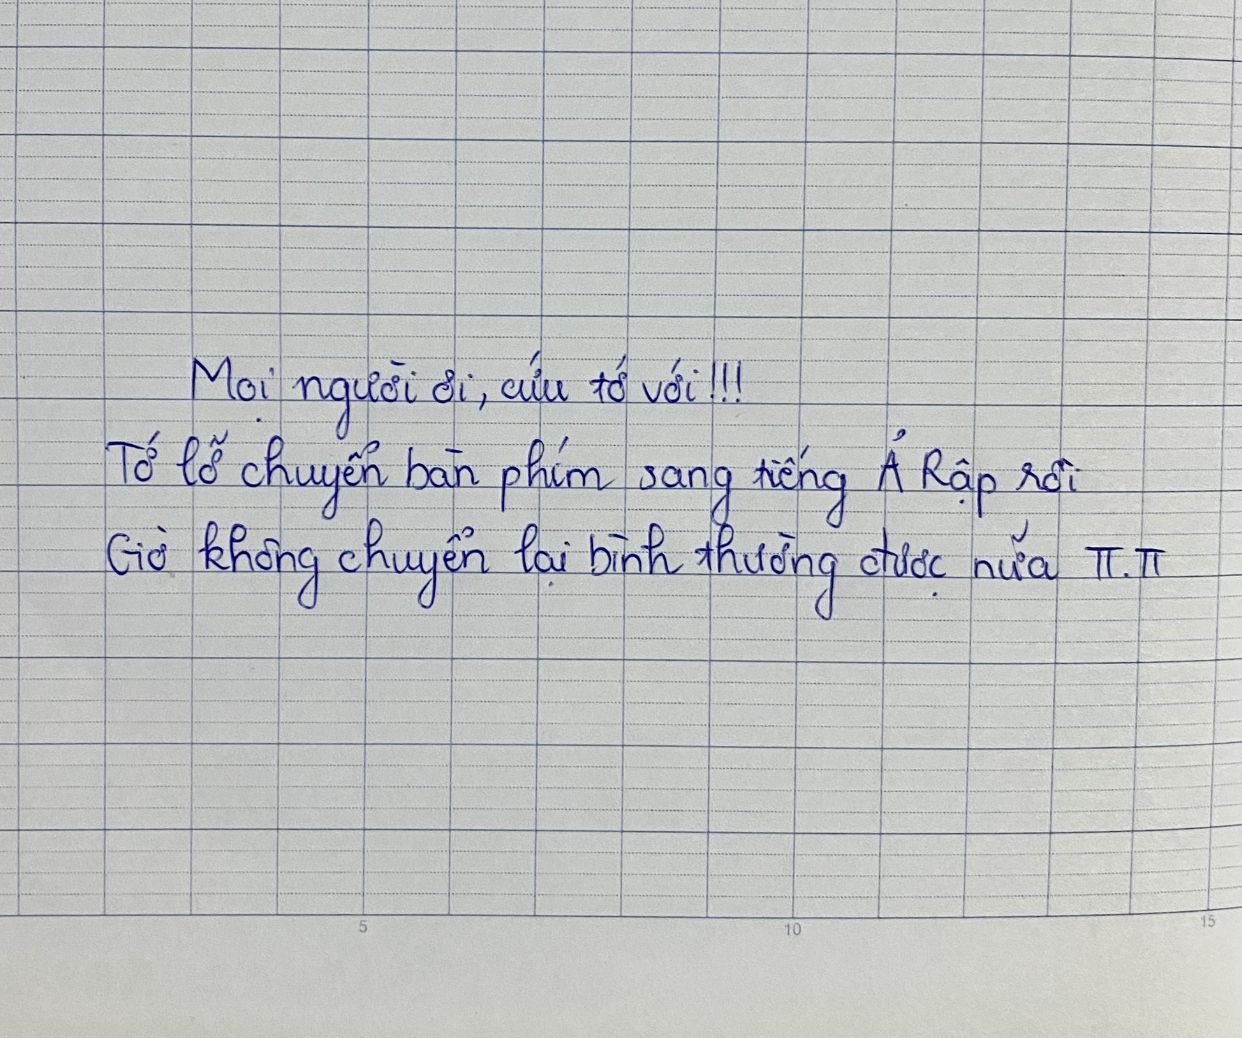 Mọi người ơi, cứu tớ với!!!
Tớ lỡ chuyển bàn phím sang tiếng Ả Rập rồi
Giờ không chuyển lại bình thường được nữa π.π
5 10 15